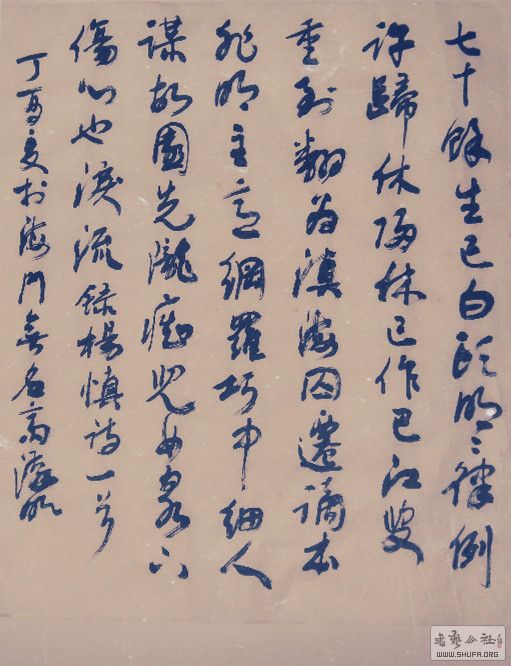 七十餘生已白頭明〻律例
許歸休歸休已作巴江叟
重到翻為滇海囚遷謫本
非明主意網羅巧中細人
謀故園先隴癡兒女泉下
傷心也淚流錄楊慎詩一首
丁酉夏於海門無名高
書藝公社
WWW.SHUFA.ORG